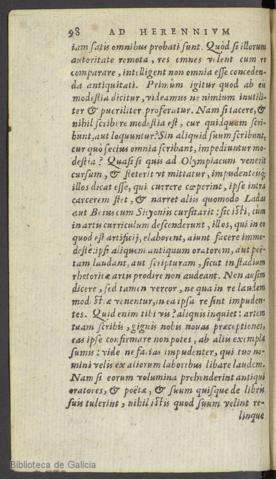 98 AD HERENNIVM
iam satis omnibus probati sunt. Quòd si illorum
autoritate remota, res omnes velent cum re
comparare, intelligent non omnia esse conceden-
da antiquitati. Primùm igitur quod ab eis
modestia dicitur, videamus ne nimium inutili-
ter & pueriliter proferatur. Nam si tacere, &
nihil scribere modestia est, cur quidquam scri-
bunt, aut loquuntur? Sin aliquid suum scribunt,
cur quò secius omnia scribant, impediuntur mo-
destia? Quasi si quis ad Olympiacum venerit
cursum, & steterit vt mittatur, impudentesq́;
illos dicat esse, qui currere cœperint, ipse intra
carcerem stet, & narret aliis quomodo Ladas
aut Boius cum Sicyonis cursitarit: sic isti, cum
in artis curriculum descenderunt, illos, qui in eo
quod est artificij, elaborent, aiunt facere immo-
destè: ipsi aliquem antiquum oratorem, aut poë-
tam laudant, aut scripturam, sicut in stadium
rhetoricæ artis prodire non audeant. Non ausim
dicere, sed tamen vereor, ne qua in re laudem
modestiæ venentur, in ea ipsa re sint impuden-
tes. Quid enim tibi vis? aliquis inquiet: artem
tuam scribis, gignis nobis nouas præceptiones,
eas ipse confirmare non potes, ab aliis exempla
sumis: vide ne facias impudenter, qui tuo no-
mini velis ex aliorum laboribus libare laudem.
Nam si eorum volumina prehenderint antiqui
oratores, & poëtæ, & suum quisque de libris
suis tulerint, nihil istis quod suum velint re-
linque
Biblioteca de Galicia